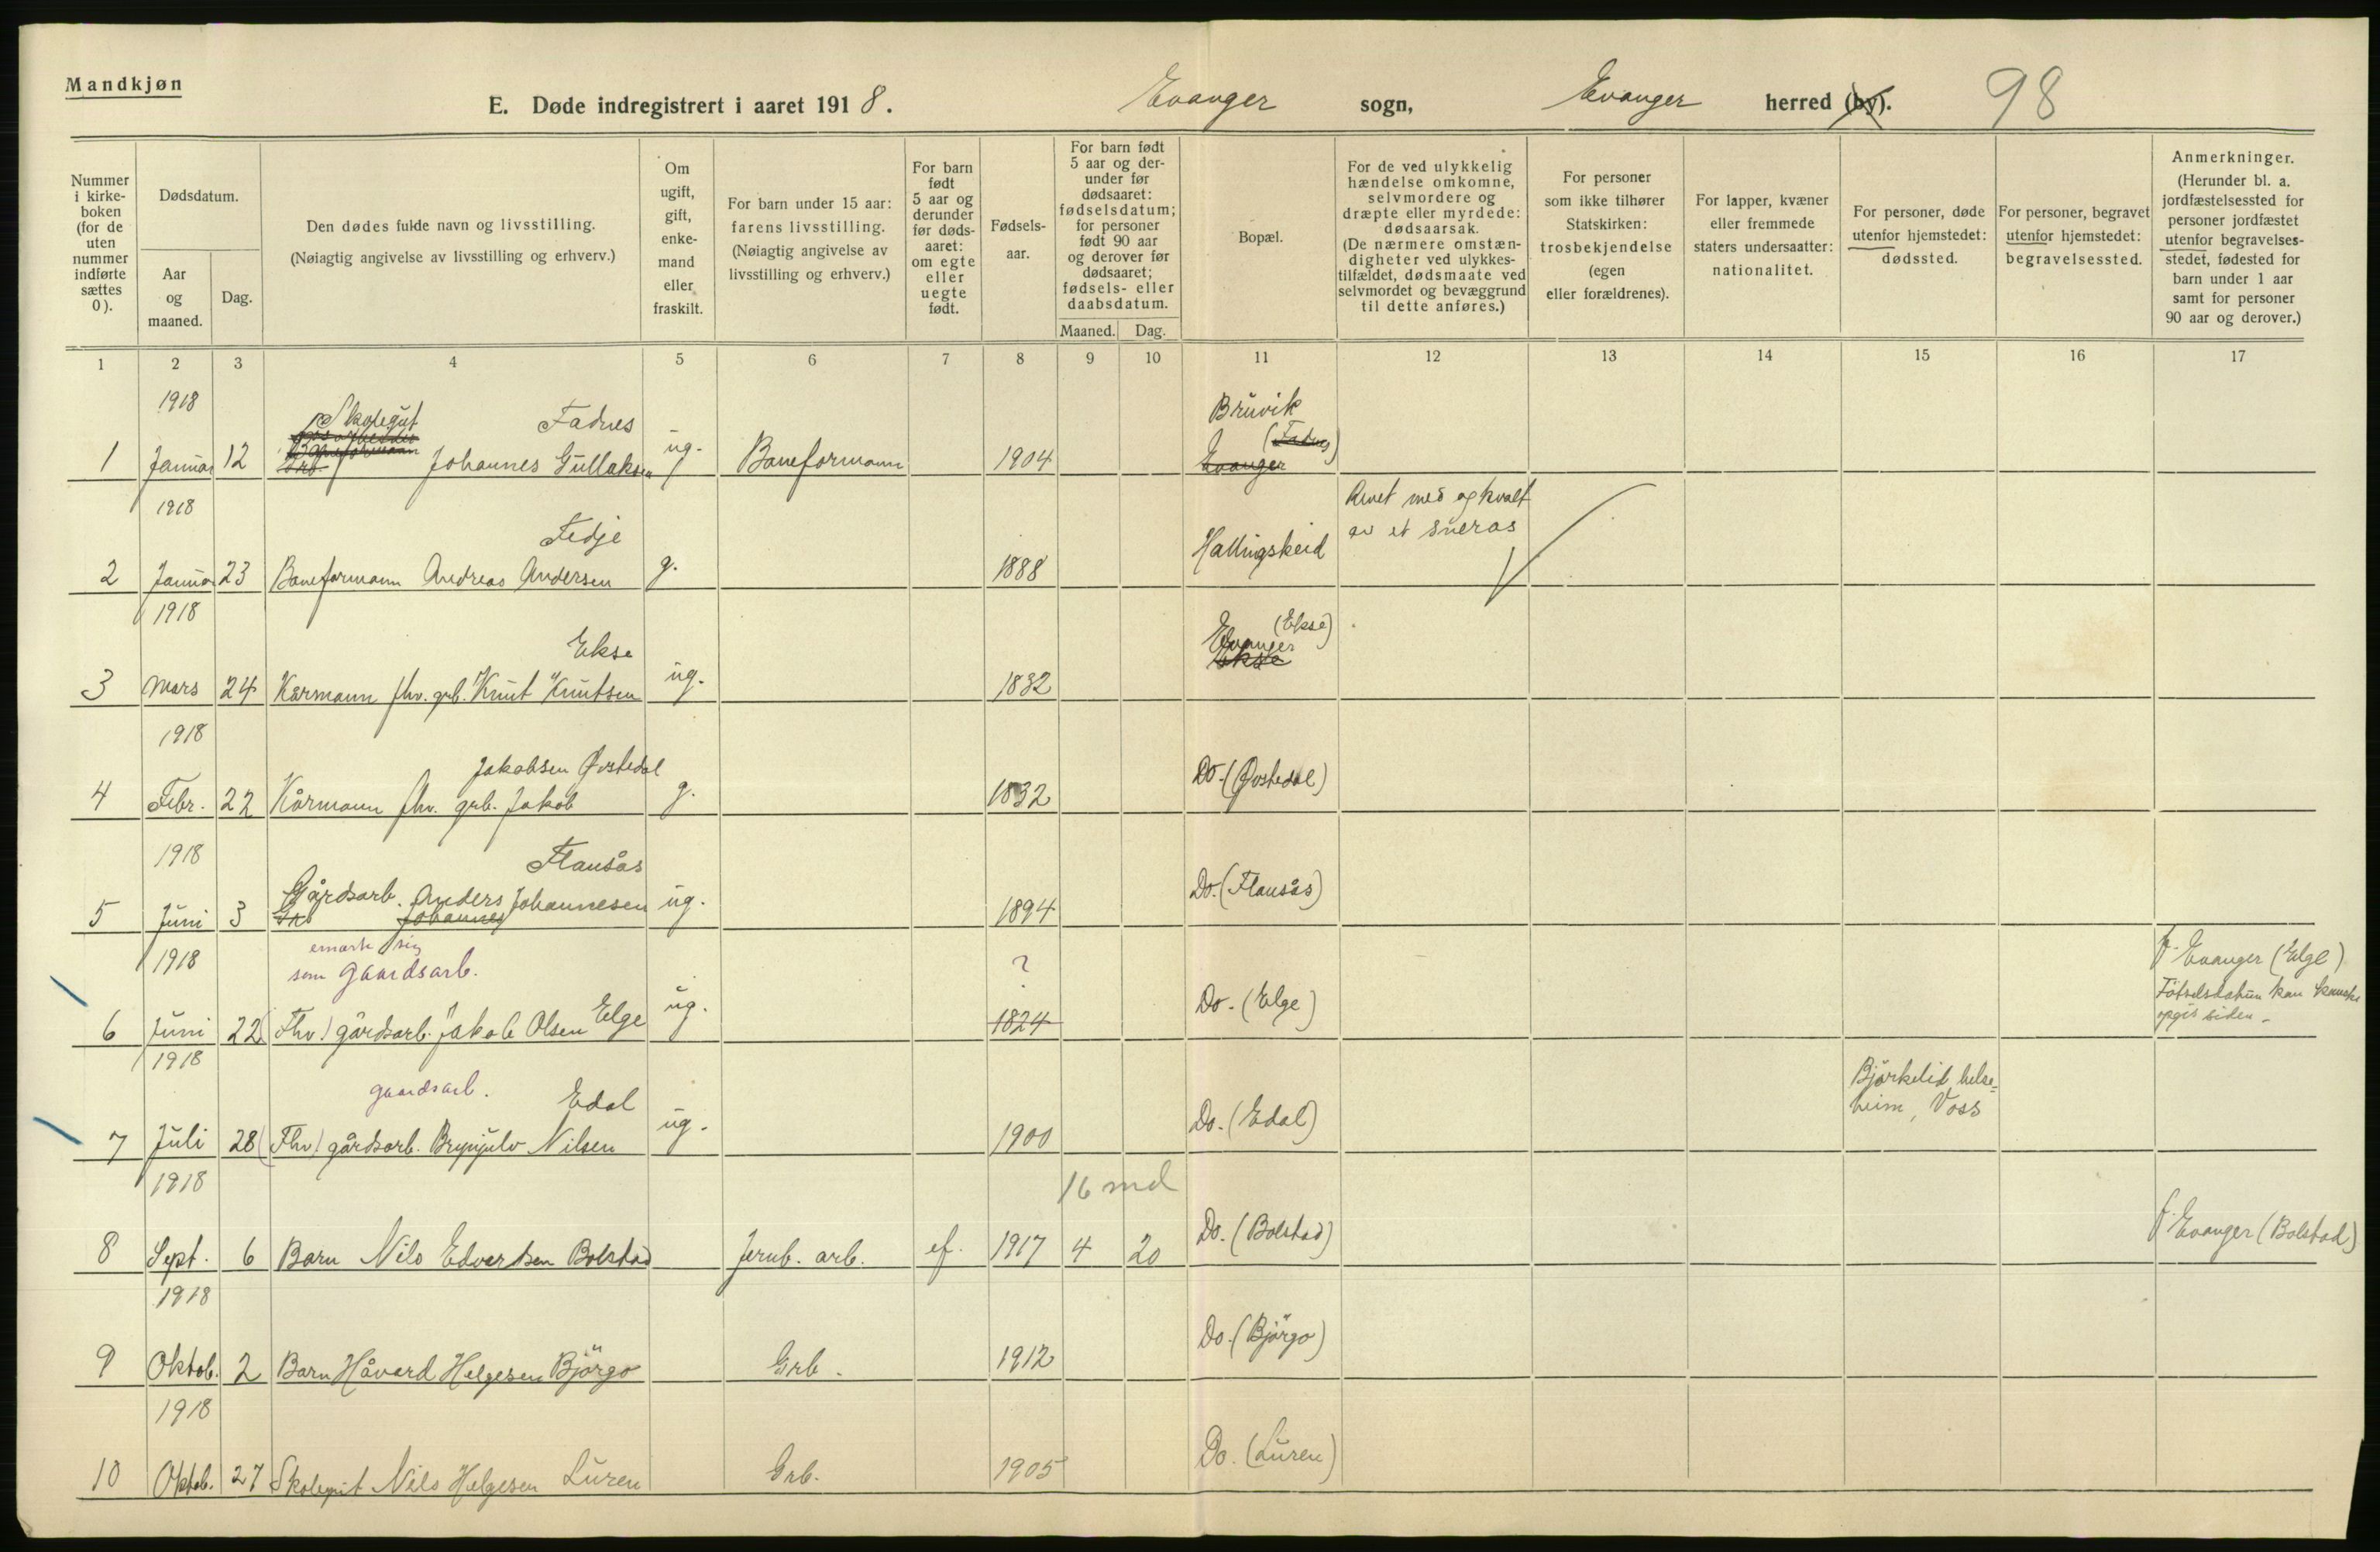 Mandkjøn
E. Døde indregistrert i aaret 1918. Evanger sogn, Evanger herred (by). 98
Nummer i kirke-boken (for de uten nummer indførte sættes 0).
Dødsdatum.
Aar og maaned.
Dag.
Den dødes fulde navn og livsstilling.
(Nøiagtig angivelse av livsstilling og erhverv.)
Om ugift, gift, enke-mand eller fraskilt.
For barn under 15 aar: farens livsstilling.
(Nøiagtig angivelse av livsstilling og erhverv.)
For barn født 5 aar og derunder før døds-aaret: om egte eller uegte født.
Fødsels-aar.
For barn født 5 aar og der-under før dødsaaret: fødselsdatum; for personer født 90 aar og derover før dødsaaret; fødsels- eller daabsdatum.
Maaned. Dag.
Bopæl.
For de ved ulykkelig hændelse omkomne, selvmordere og dræpte eller myrdede: dødsaarsak.
(De nærmere omstæn-digheter ved ulykkes-tilfældet, dødsmaate ved selvmordet og bevæggrund til dette anføres.)
For personer som ikke tilhører Statskirken: trosbekjendelse (egen eller forældrenes).
For lapper, kvæner eller fremmede staters undersaatter: nationalitet.
For personer, døde utenfor hjemstedet: dødssted.
For personer, begravet utenfor hjemstedet: begravelsessted.
Anmerkninger.
(Herunder bl. a. jordfæstelsessted for personer jordfæstet utenfor begravelses-stedet, fødested for barn under 1 aar samt for personer 90 aar og derover.)
1 2 3 4 5 6 7 8 9 10 11 12 13 14 15 16 17
1918 Skolegut Fadnes Bruvik
(Fadnes)
1 Januar 12 Grb. Johannes Gullaksen ug. Baneformann 1904 Evanger
1918 Fedje Revet med og kvalt
av et sneras
2 Januar 23 Baneformann Andreas Andersen g. 1888 Hallingskeid
1918 Ekse Evanger (Ekse)
Ekse
3 Mars 24 Kårmann fhv. grb. Knut Knutsen ug. 1832
1918 Jakobsen Øvstedal
4 Febr. 22 Kårmann fhv. grb. Jakob g. 1832 Do. (Øvstedal)
1918 Flausås
Gårdsarb. Anders Johannesen
5 Juni 3 Grb Johannes ug. 1894 Do. (Flausås)
1918 sig
som gaardsarb. ? f. Evanger (Elge)
Fötselsdatum kan kanske
opgis siden -
6 Juni 22 (Fhv.) gårdsarb. Jakob Olsen Elge ug. 1824 Do. (Elge)
1918 gaardsarb. Edal Björkelid helse-
heim, Voss
7 Juli 28 (Fhv.) gårdsarb. Brynjulv Nilsen ug. 1900 Do. (Edal)
1918 16 md
8 Sept. 6 Barn Nils Edvardsen Bolstad Jernb. arb. ef. 1917 4 20 Do. (Bolstad) f. Evanger (Bolstad)
1918
9 Oktob. 2 Barn Håvard Helgesen Björgo Grb. 1912 Do. (Björgo)
1918
10 Oktob. 27 Skolegut Nils Helgesen Luren Grb. 1905 Do. (Luren)